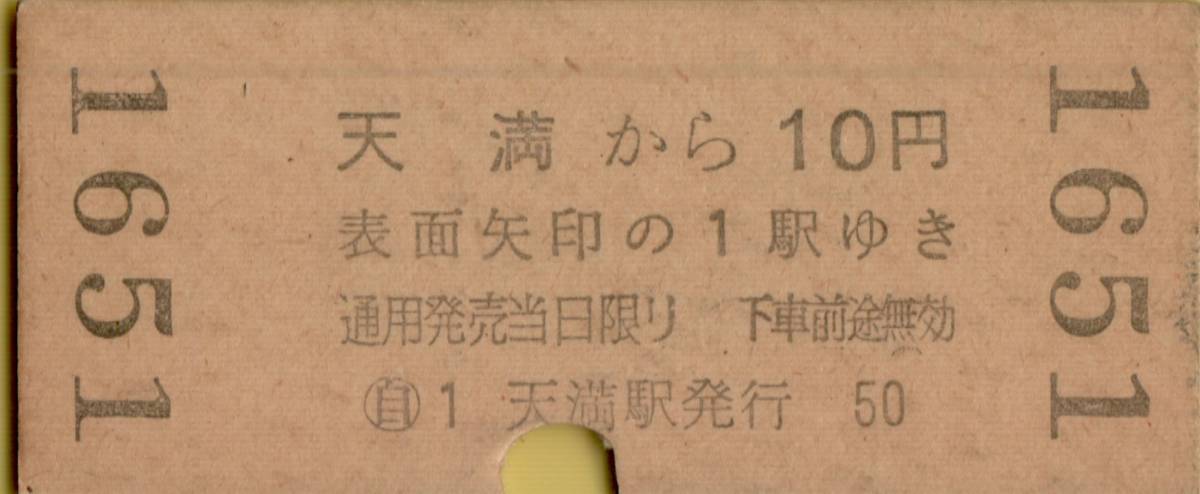 1651
天満から10円
表面矢印の1駅ゆき
通用発売当日限り 下車前途無効
㊀自1 天満駅発行 50
1651